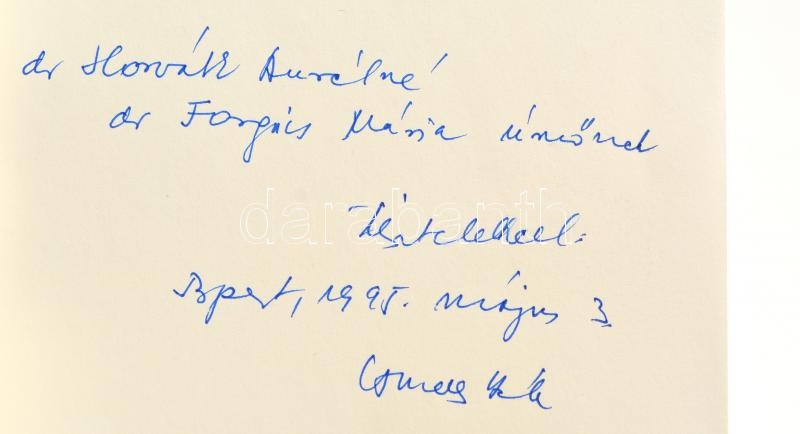 dr Horváth Aurélné
dr Forgács Mária úrnőnek
darabanth
Tisztelettel:
Bpest, 1995. május 3.